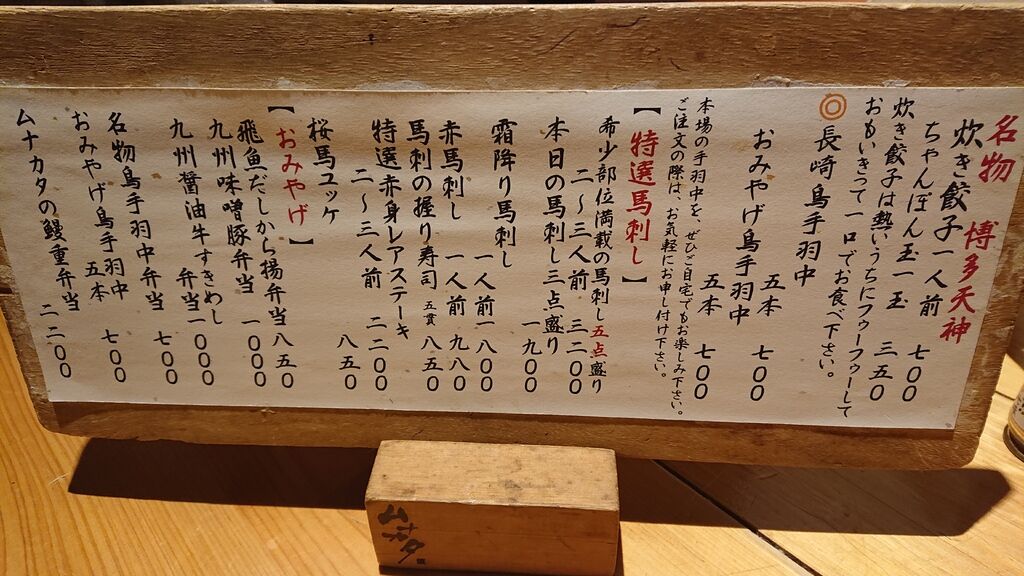 名物 博多天神
炊き餃子一人前 七〇〇
ちゃんぽん玉一玉 三五〇
炊き餃子は熱いうちにフゥーフゥーして
おもいきって一口でお食べ下さい。
◎長崎鳥手羽中
五本 七〇〇
おみやげ鳥手羽中
五本 七〇〇
本場の手羽中を、ぜひご自宅でもお楽しみ下さい。
ご注文の際は、お気軽にお申し付け下さい。
【特選馬刺し】
希少部位満載の馬刺し五点盛り
二〜三人前 三二〇〇
本日の馬刺し三点盛り
一九〇〇
霜降り馬刺し
一人前 一八〇〇
赤馬刺し 一人前 九八〇
馬刺の握り寿司 五貫 八五〇
特選赤身レアステーキ
二〜三人前 二二〇〇
桜馬ユッケ 八五〇
【おみやげ】
飛魚だしから揚弁当 八五〇
九州味噌豚弁当 一〇〇〇
九州醤油牛すきめし
弁当 一〇〇〇
名物鳥手羽中弁当 七〇〇
おみやげ鳥手羽中
五本 七〇〇
ムナカタの鰻重弁当
二二〇〇
ムナカタ